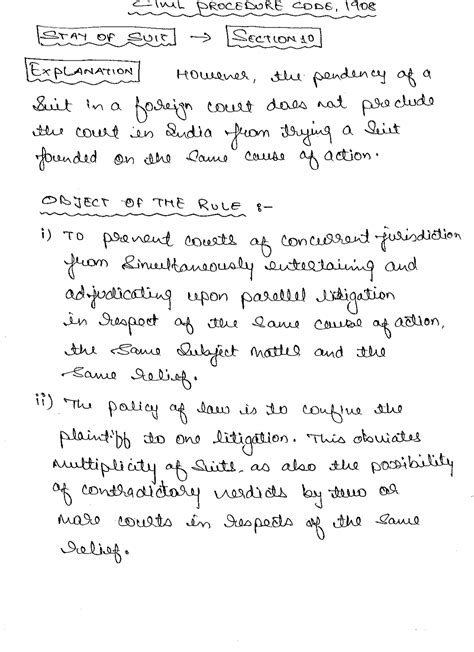 CIVIL PROCEDURE CODE, 1908
STAY OF SUIT → SECTION 10
EXPLANATION However, the pendency of a
suit in a foreign court does not preclude
the court in India from trying a suit
founded on the same cause of action.
OBJECT OF THE RULE :-
i) To prevent courts of concurrent jurisdiction
from simultaneously entertaining and
adjudicating upon parallel litigation
in respect of the same cause of action,
the same subject matter and the
same relief.
ii) The policy of law is to confine the
plaintiff to one litigation. This obviates
multiplicity of suits, as also the possibility
of contradictory verdicts by two or
more courts in respects of the same
relief.